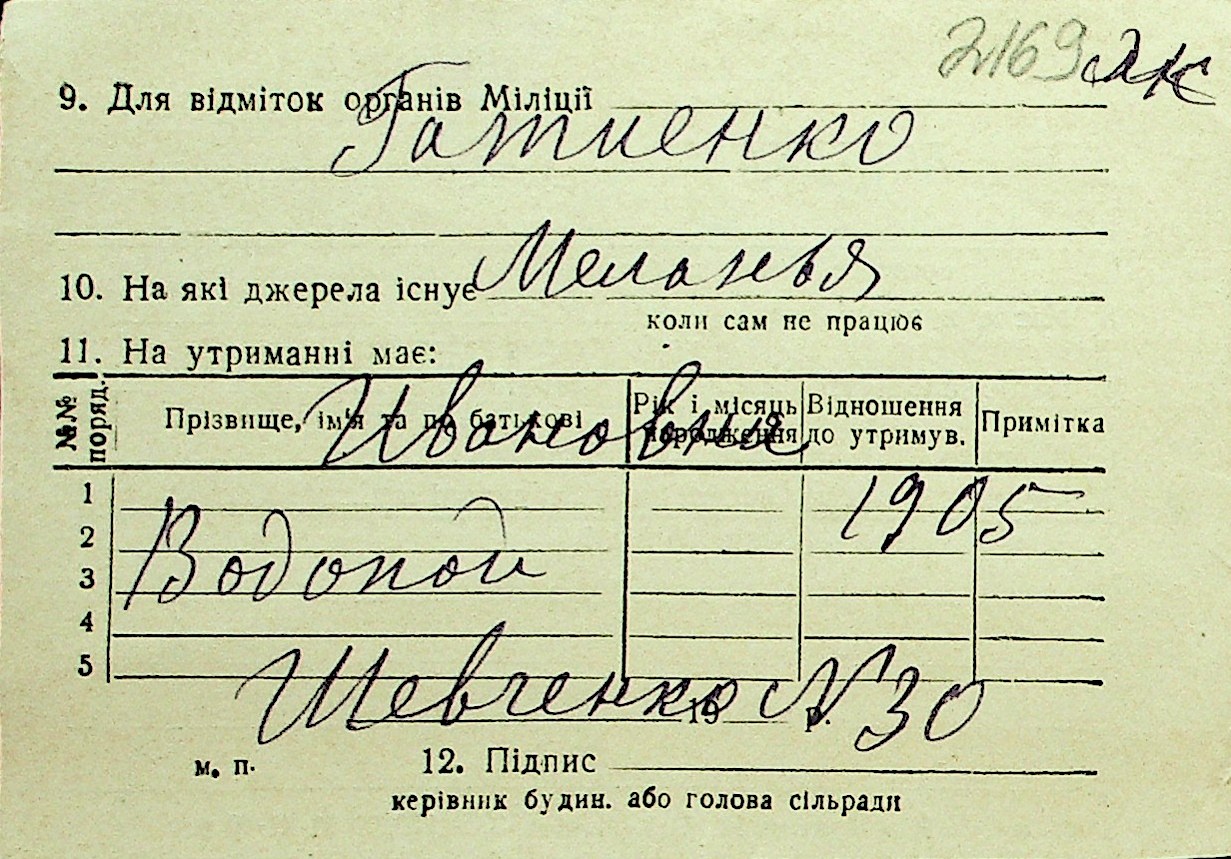 2169 ЛК
9. Для відміток органів Міліції
Гатиенко
Меланья
10. На які джерела існує
коли сам не працює
11. На утриманні має:
№№ поряд. Прізвище, ім'я та по батькові Рік і місяць народження Відношення до утримув. Примітка
Ивановна
1
1905
2
Водопой
3
4
5
Шевченко N 30
19 р.
м. п. 12. Підпис
керівник будин. або голова сільради